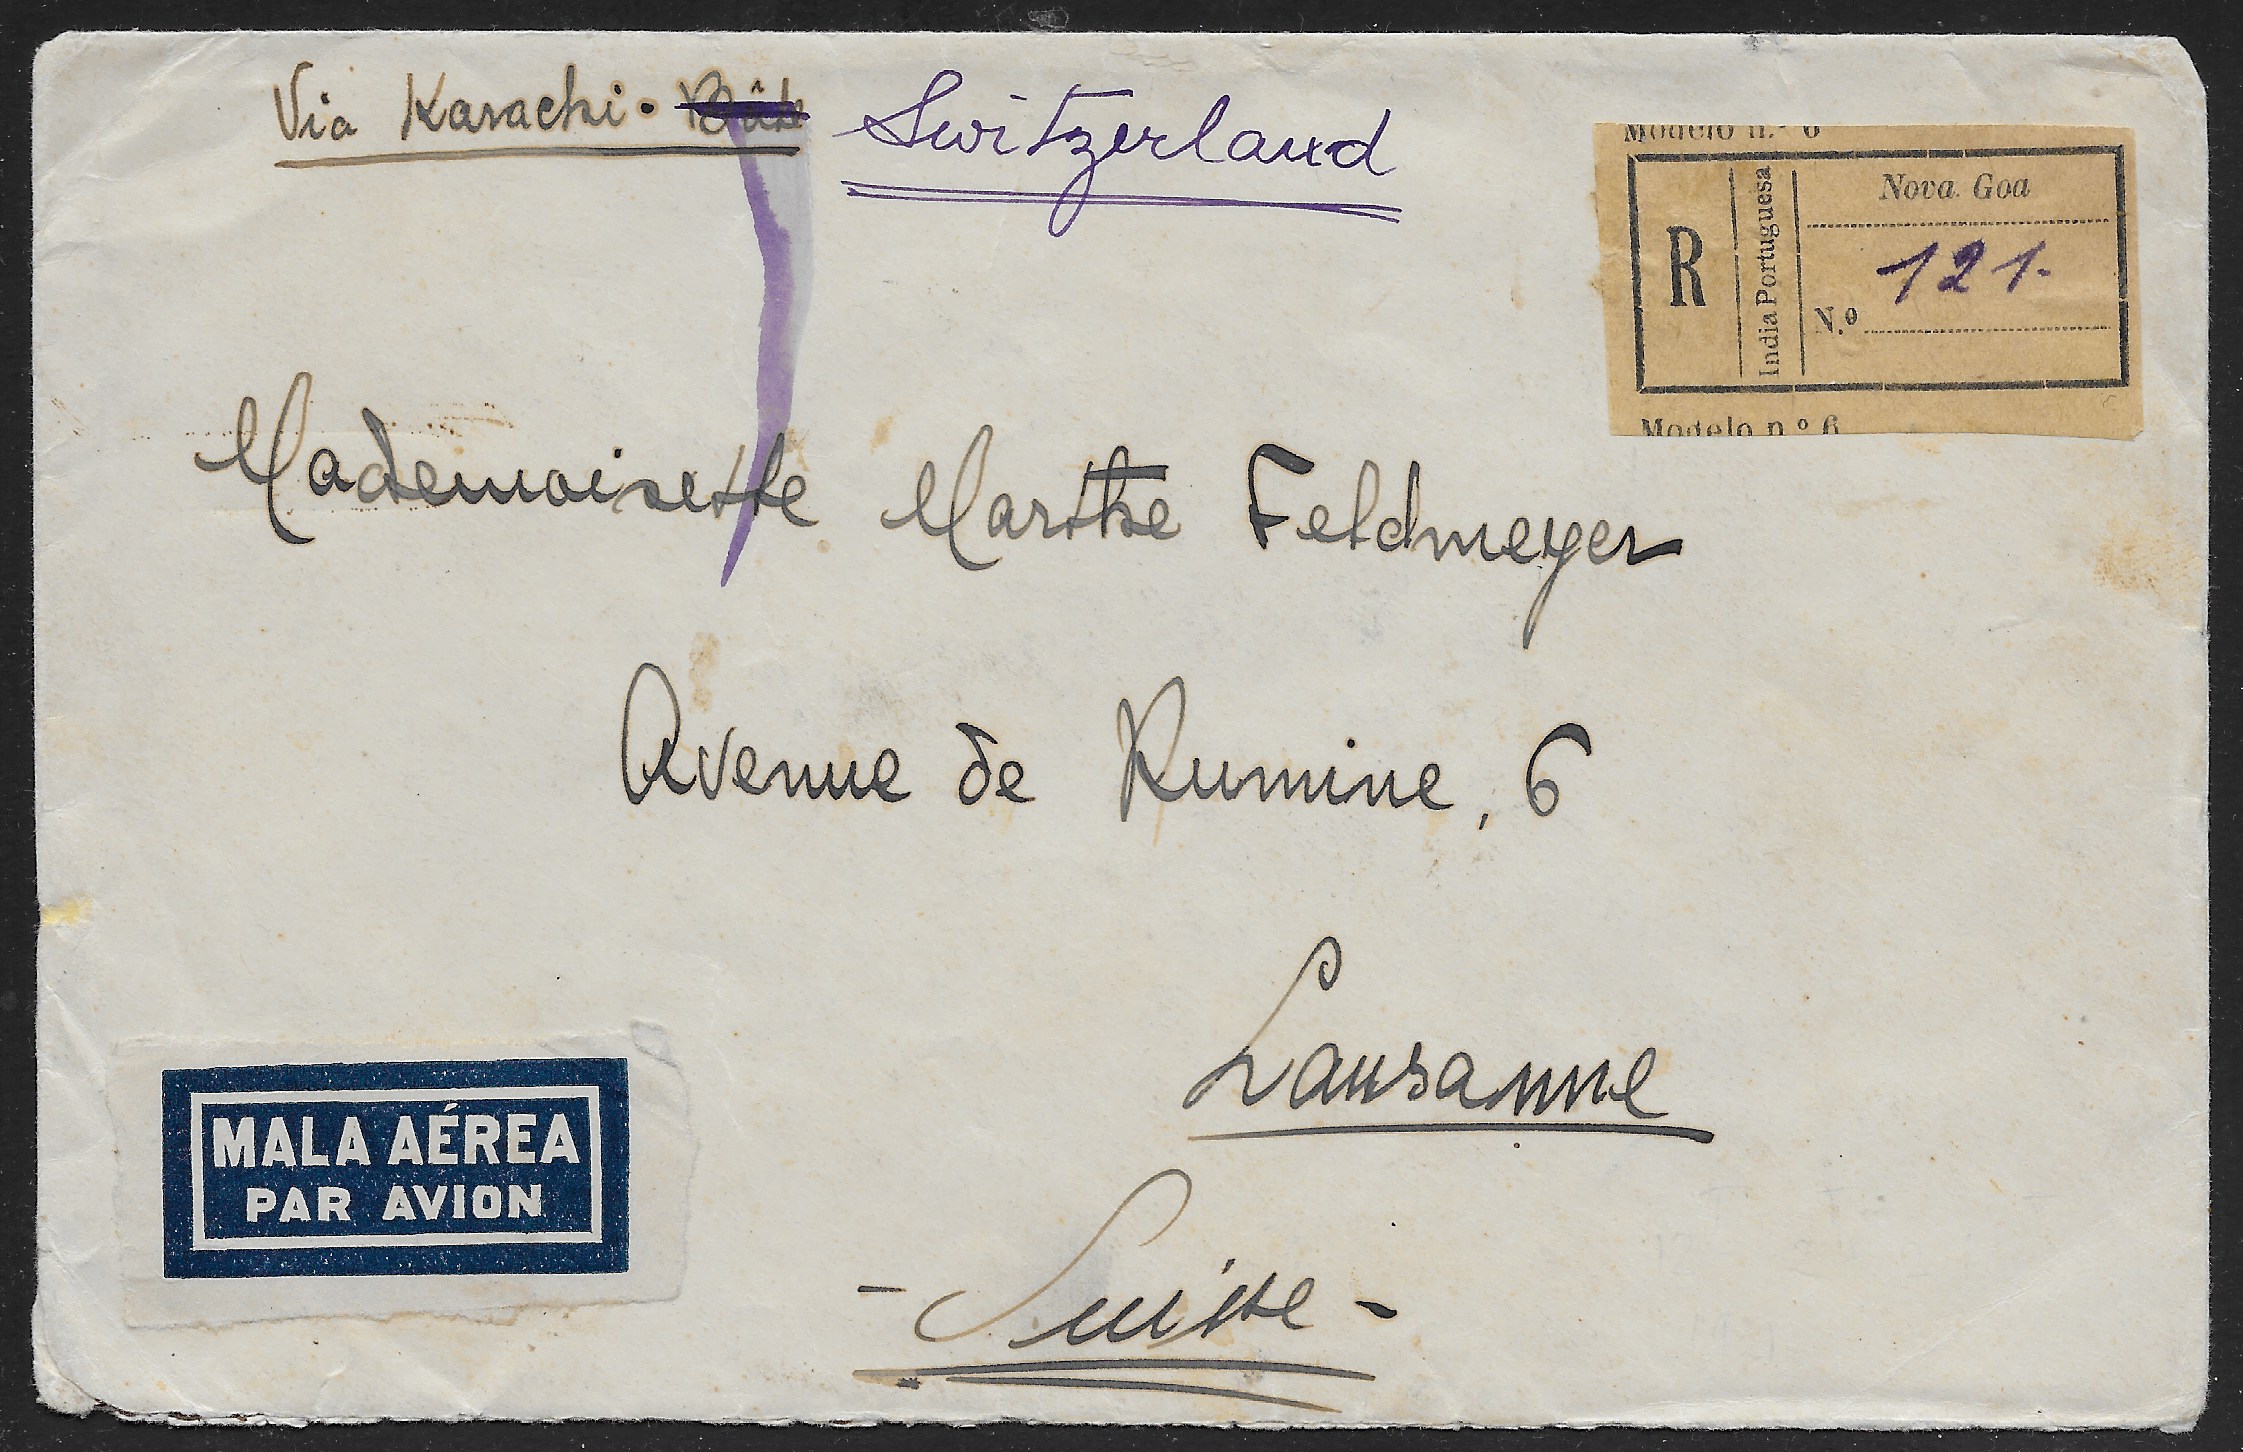 Via Karachi. Switzerland
Modelo n.º 6
R
India Portuguesa
Nova Goa
N.º 121.
Modelo n.º 6
Mademoiselle Marthe Feldmeyer
Avenue de Rumine, 6
Lausanne
- Suisse -
MALA AÉREA
PAR AVION